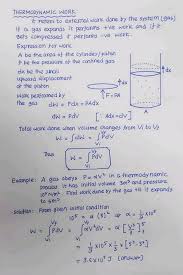 THERMODYNAMIC WORK
It refers to external work done by the system (gas)
If a gas expands it performs +ve work and if it
gets compressed it performs -ve work.
Expression for work
A be the area of the cylinder/piston
P be the pressure of the confined gas
dx be the small
upward displacement
of the piston
Work performed by
the gas dW = Fdx = PAdx
dW = PdV [∴ Adx = dV]
dx
F = PA
A
Total work done when volume changes from V₁ to V₂
W = ∫PdV
Thus W = ∫PdV
Example: A gas obeys P = αV² in a thermodynamic
process. It has initial volume 3m³ and pressure
10⁵ Find work done by the gas till it expands
to 5m³.
Solution: From given initial condition
10⁵ = α (3)² or α = 1/9 × 10⁵
W = ∫PdV = ∫αV²dV = α [V³/3]
= 1/9 × 10⁵ × 1/3 [5³ - 3³]
= 3.6 × 10⁵ J (Answer)